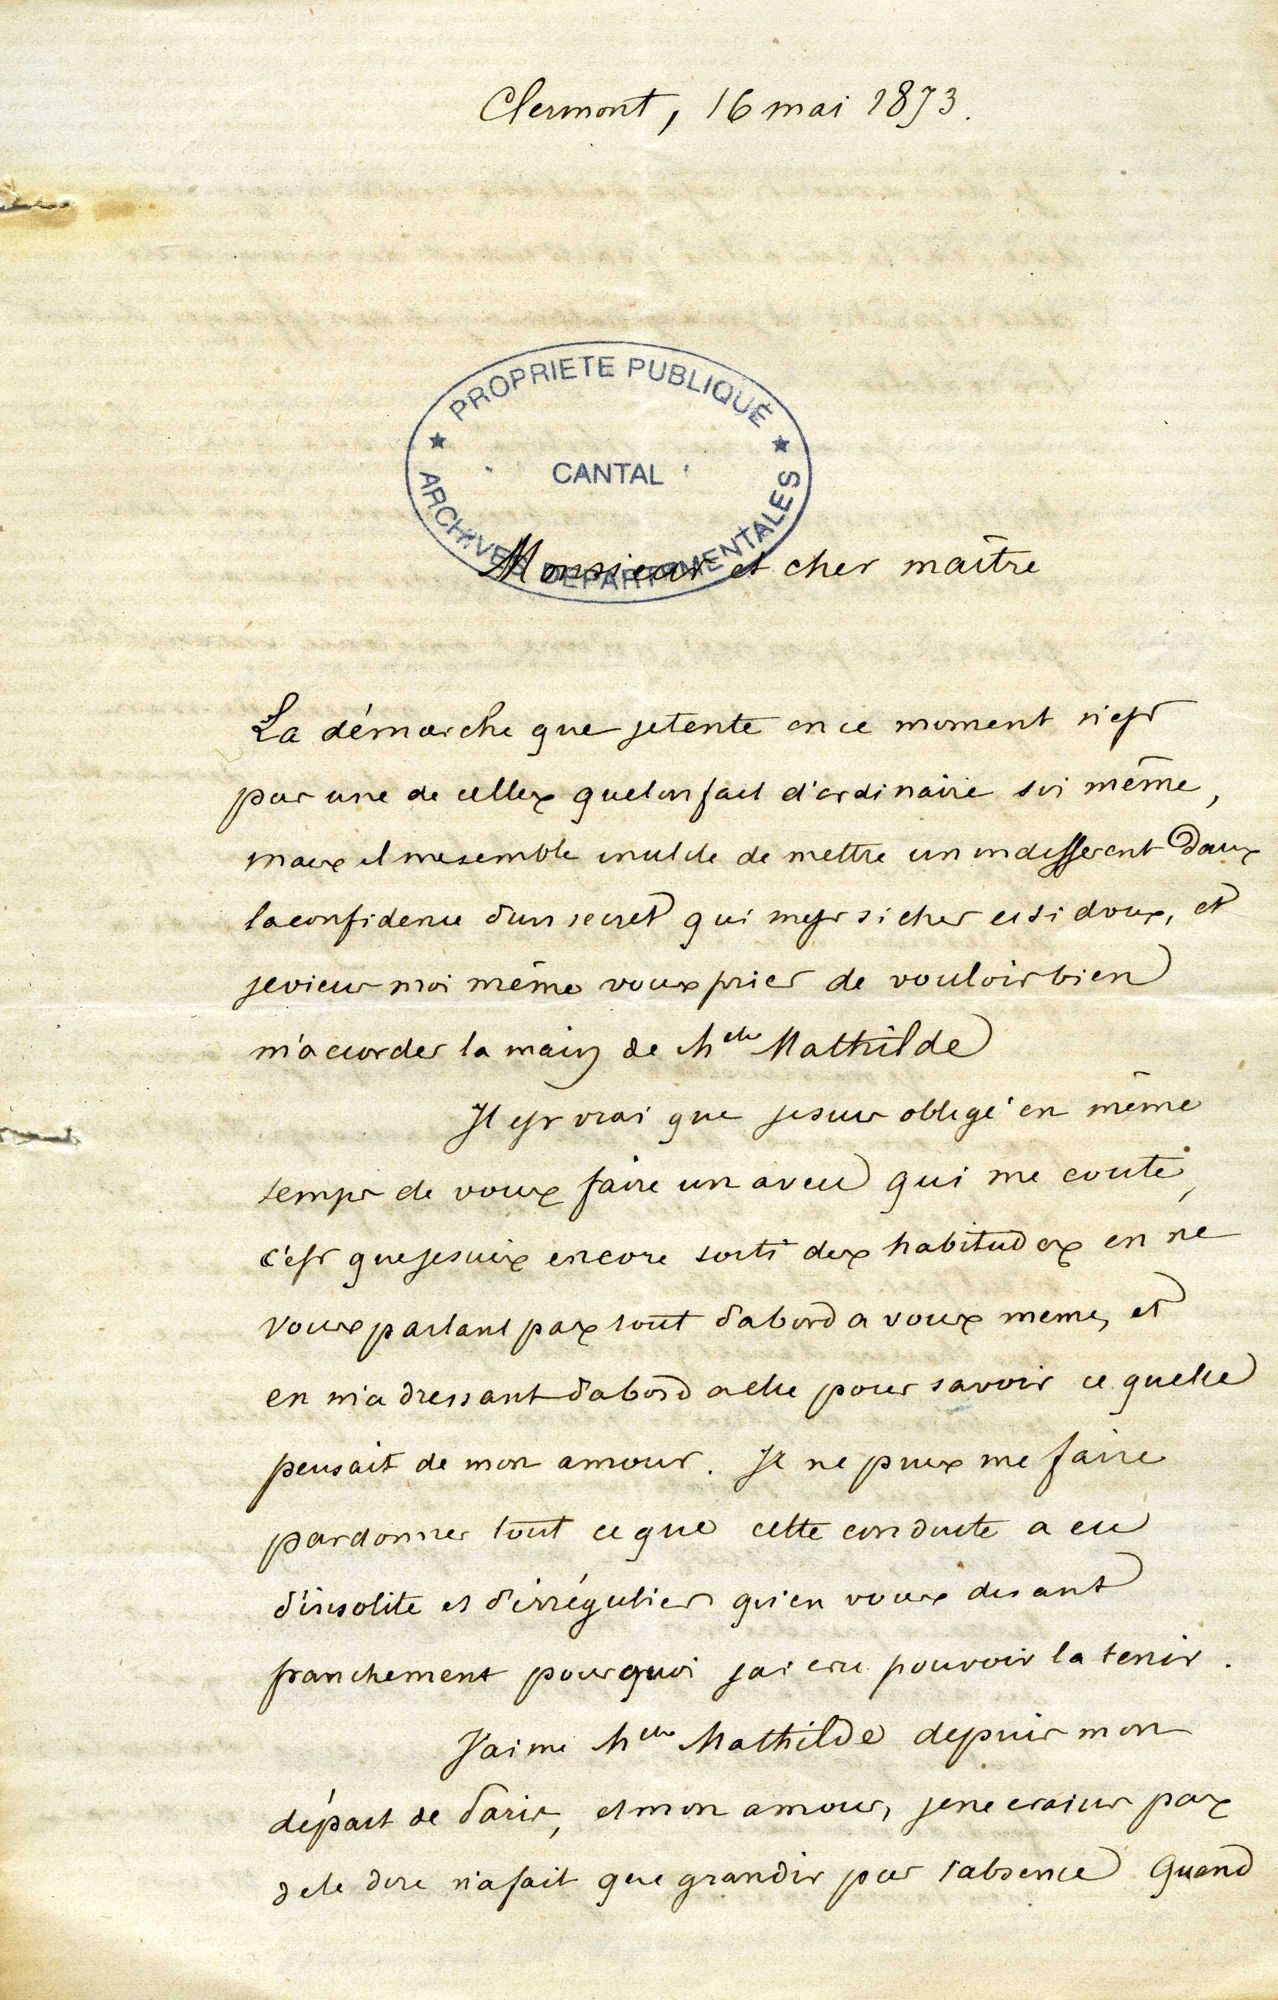 Clermont, 16 mai 1873.
PROPRIETE PUBLIQUE
CANTAL
ARCHIVES DEPARTEMENTALES
Monsieur et cher maître
La démarche que je tente en ce moment n'est
pas une de celles que l'on fait d'ordinaire soi même,
mais il me semble inutile de mettre un indifférent dans
la confidence d'un secret qui m'est si cher et si doux, et
je viens moi même vous prier de vouloir bien
m'accorder la main de Melle Mathilde
Il est vrai que je suis obligé en même
temps de vous faire un aveu qui me coute,
c'est que je suis encore sorti des habitudes en ne
vous parlant pas tout d'abord a vous meme, et
en m'adressant d'abord a elle pour savoir ce quelle
pensait de mon amour. Je ne puis me faire
pardonner tout ce que cette conduite a eu
d'insolite et d'irrégulier qu'en vous disant
franchement pourquoi j'ai cru pouvoir la tenir.
J'aime Melle Mathilde depuis mon
départ de Paris, et mon amour, je ne crains pas
de le dire n'a fait que grandir par l'absence Quand